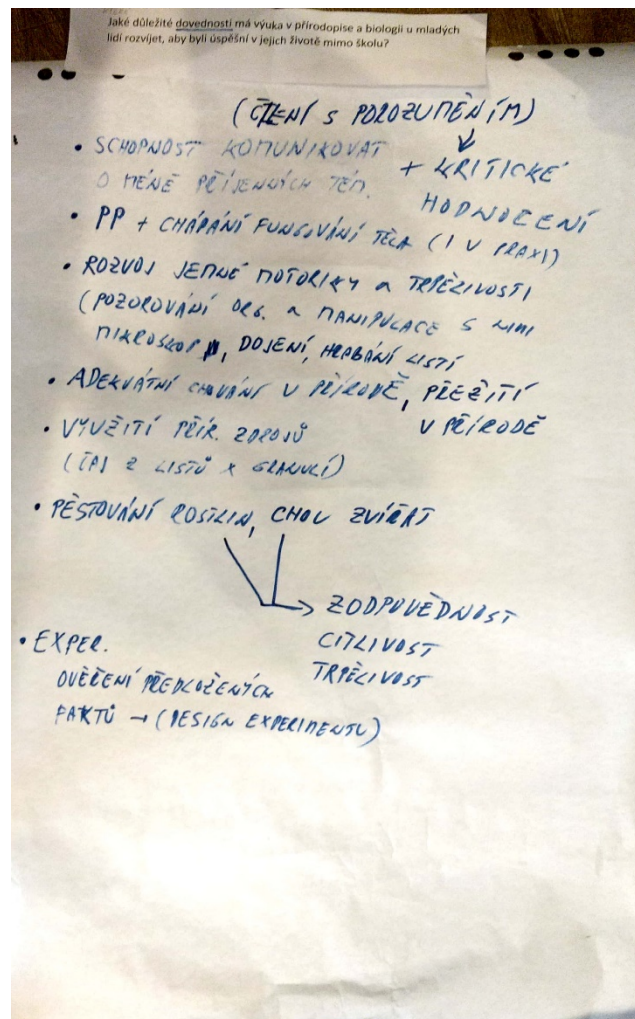 Jaké důležité dovednosti má výuka v přírodopise a biologii u mladých
lidí rozvíjet, aby byli úspěšní v jejich životě mimo školu?
(ČTENÍ S POROZUMĚNÍM)
+ KRITICKÉ
HODNOCENÍ
• SCHOPNOST KOMUNIKOVAT
O MÉNĚ PŘÍJEMNÝCH TÉM.
• PP + CHÁPÁNÍ FUNGOVÁNÍ TĚLA (I V PRAXI)
• ROZVOJ JEMNÉ MOTORIKY A TRPĚLIVOSTI
(POZOROVÁNÍ ORG. A MANIPULACE S NIMI
MIKROSKOP, DOJENÍ, HRABÁNÍ LISTÍ
• ADEKVÁTNÍ CHOVÁNÍ V PŘÍRODĚ, PŘEŽITÍ
V PŘÍRODĚ
• VYUŽITÍ PŘÍR. ZDROJŮ
(ČAJ Z LISTŮ X GRANULÍ)
• PĚSTOVÁNÍ ROSTLIN, CHOV ZVÍŘAT
→ ZODPOVĚDNOST
CITLIVOST
TRPĚLIVOST
• EXPER.
OVĚŘENÍ PŘEDLOŽENÝCH
FAKTŮ → (DESIGN EXPERIMENTU)